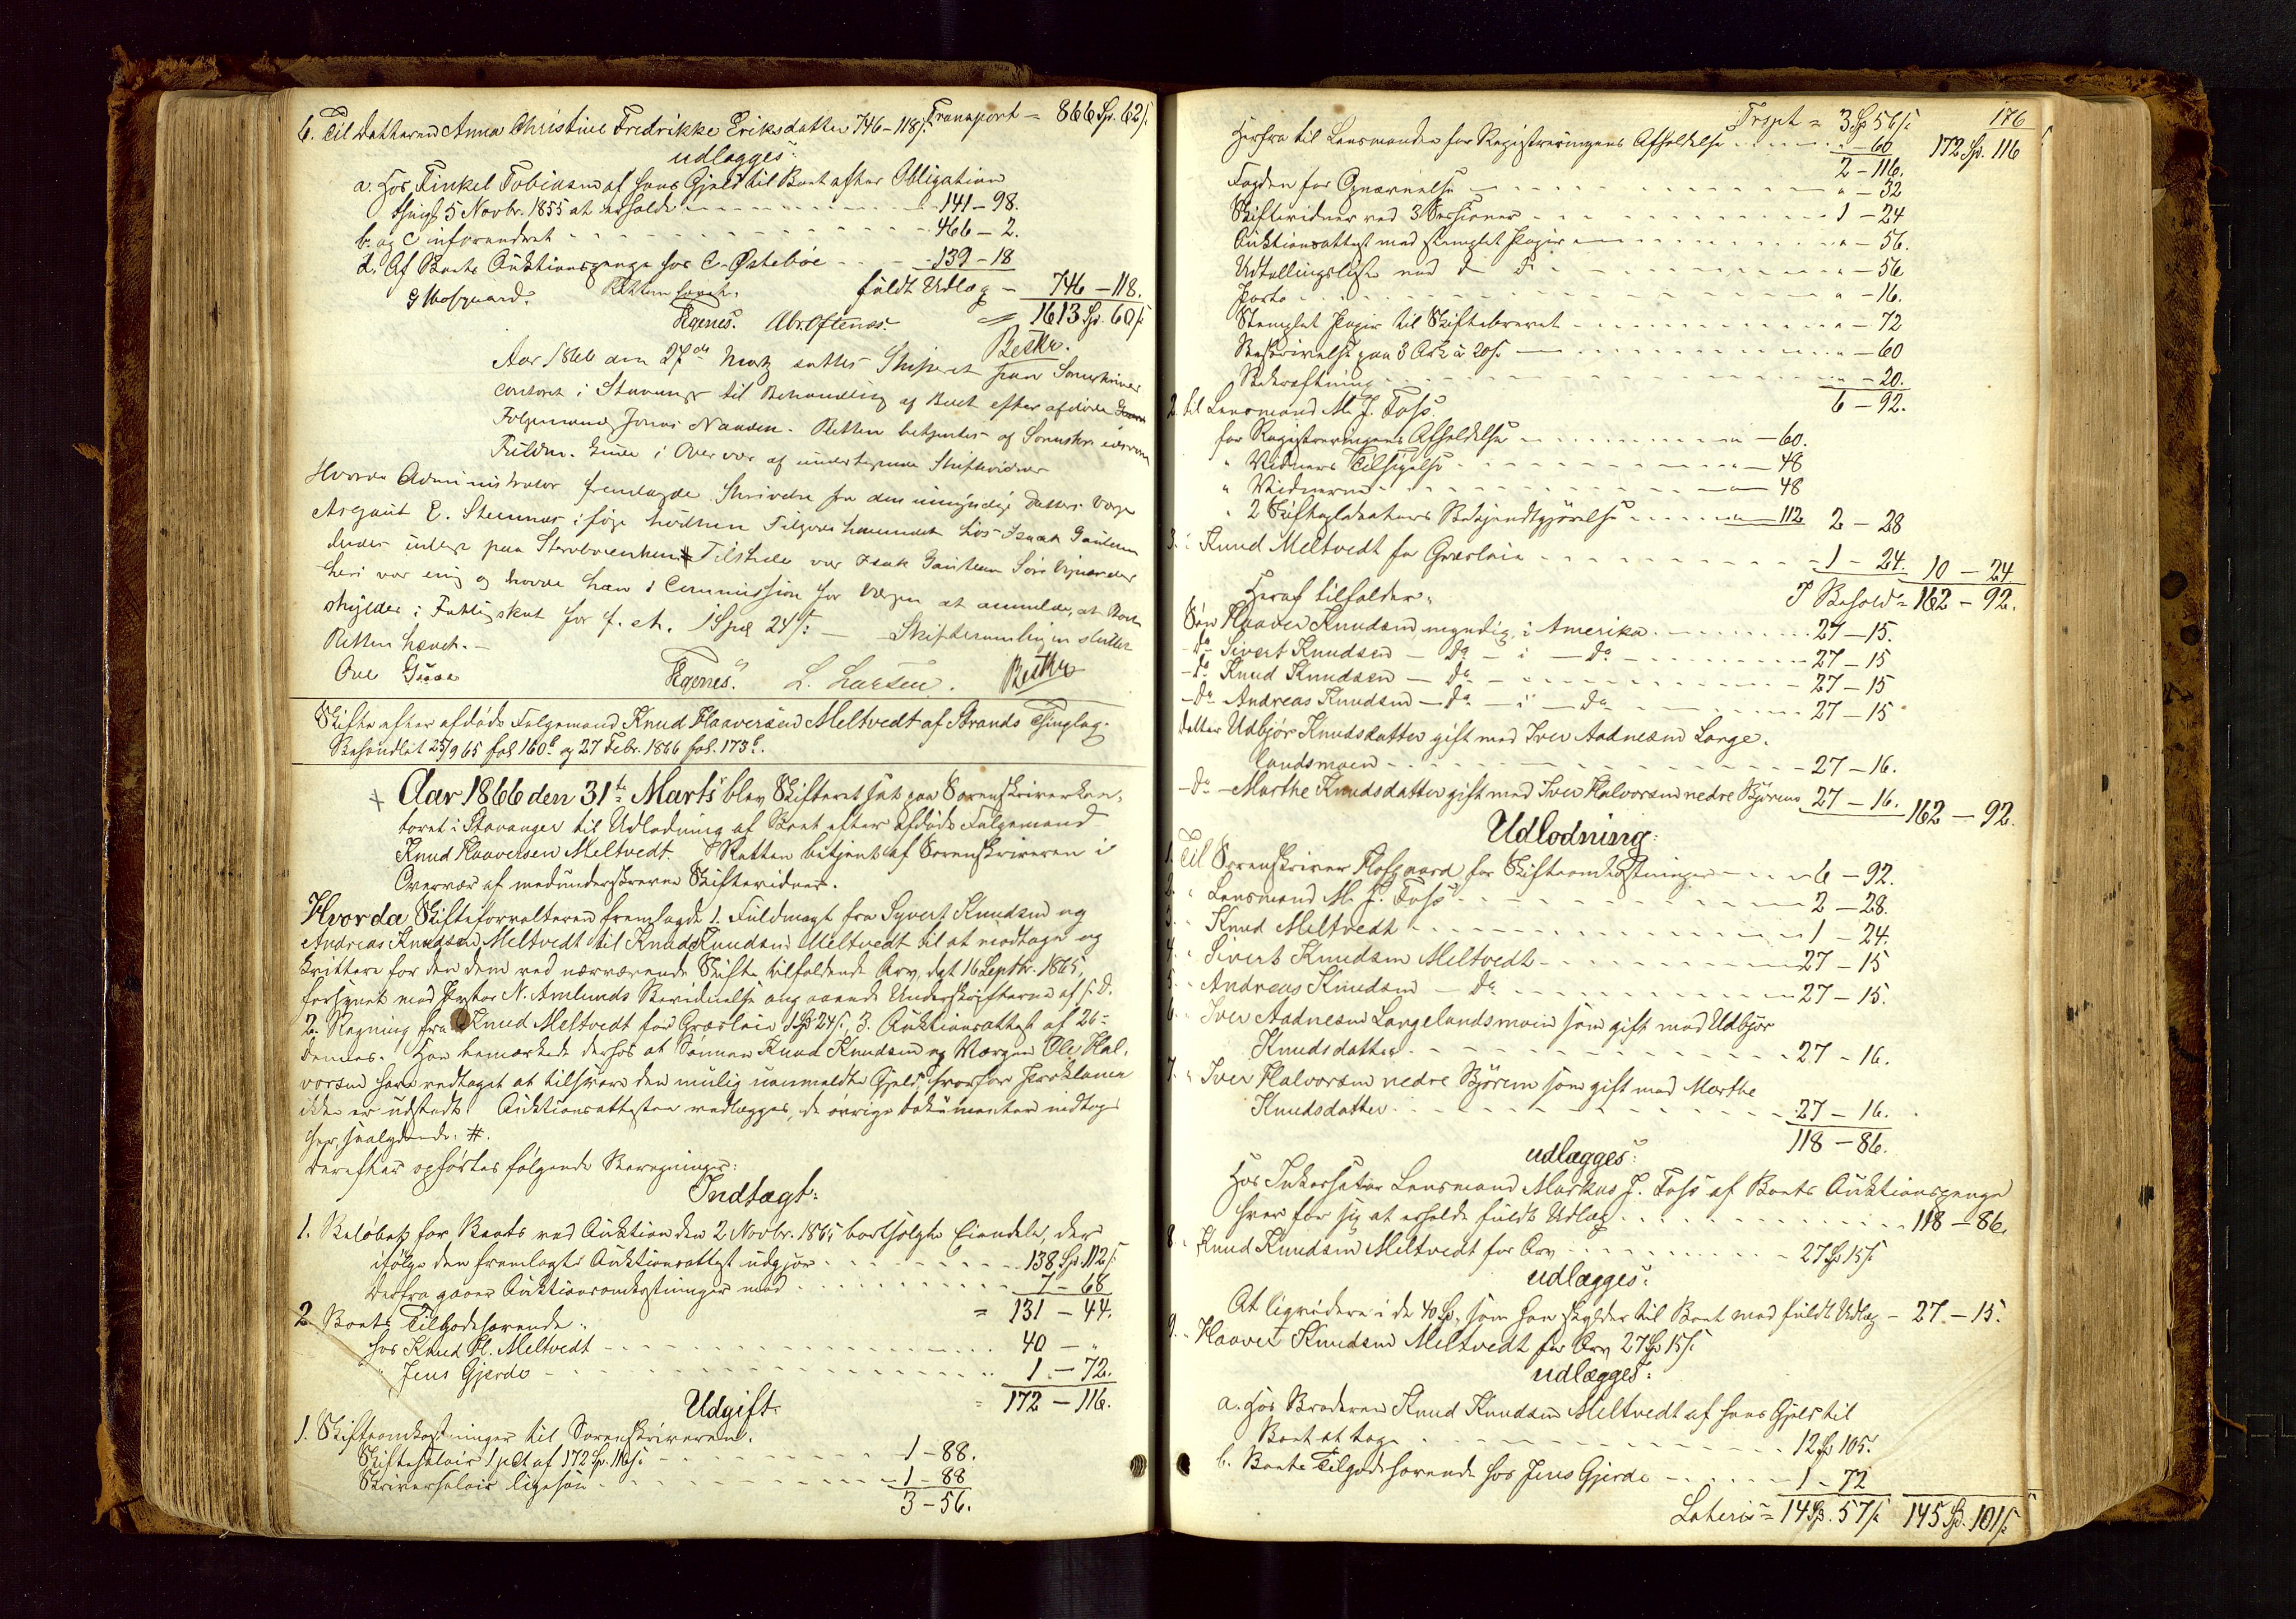 Transport = 866 Sp. 62 s.
6. Til Datteren Anna Christine Fredrikke Eriksdatter 746-118 s.
udlægges:
a. Hos Tinkel Tobiasen af hans Gjeld til Boet efter Obligation
thingl. 5 Novbr. 1855 at erholde 141-98.
b. og c uforandret 466-2.
d. Af Boets Auktionspenge hos C. Østebøe 139-18
fuldt Udlæg - 746-118.
= 1613 Sp. 60 s.
Hofgaard. Retten hævet.
Egenes. Abr. Oftenæs.
Beskr.
Aar 1866 den 27de Marts sattes Skifteret paa Sorenskriver
contoret i Stavanger til Behandling af Boet efter afdøde
Følgemand Jonas Nauden. Retten betjentes af Sorenskr.
Fuldm. Guse i Overvær af undertegnede Skiftevidner
Hvorda Administrator fremlagde Skrivelse fra den umyndige Datters Værge
Asgaut E. Steennæs
Retten hævet.
Egenes. L. Larsen. Beskr
Skifte efter afdøde Følgemand Knud Haaversen Meltvedt af Strands Thinglag.
Behandlet 25/9 65 fol 160 b og 27 Febr. 1866 fol. 173 b.
Aar 1866 den 31te Marts blev Skifteret sat paa Sorenskriverkon-
toret i Stavanger til Udlodning af Boet efter afdøde Følgemand
Knud Haaversen Meltvedt. Retten betjent af Sorenskriveren i
Overvær af medunderskrevne Skiftevidner.
Hvorda Skifteforvalteren fremlagde 1. Fuldmagt fra Syvert Knudsen og
Andreas Knudsen Meltvedt til Knud Knudsen Meltvedt til at modtage og
kvittere for den dem ved nærværende Skifte tilfaldende Arv, dat 16 Septbr. 1865,
forsynet med Pastor N. Amlunds Bevidnelse ang aaende Underskrifterne af s. D.
2. Regning fra Knud Meltvedt for Græsleie 1 Sp 24 s, 3. Auktionsattest af 26
dennes. Han bemærkede derhos at Sønnen Knud Knudsen og Værgen Ole Hal-
vorsen have vedtaget at tilsvare den mulig uanmeldte Gjeld, hvorfor Proklama
ikke er udstedt. Auktionsattesten vedlægges, de øvrige Dokumenter indtages
her, saalydende: #.
Derefter opførtes følgende Beregninger:
Indtægt:
1. Beløbet for Boets ved Auktion den 2 Novbr. 1865 bortsolgte Eiendele, der
ifølge den fremlagte Auktionsattest udgjør 138 Sp. 112 s.
Derfra gaaer Auktionsomkostninger med 7-68
= 131-44.
2. Boets Tilgodehavende:
hos Knud H. Meltvedt 40 - "
" Jens Gjerde 1-72.
= 172-116.
Udgift:
1. Skifteomkostninger til Sorenskriveren.
Skiftesalair 1 pCt af 172 Sp. 116 s. 1-88.
Skriversalair ligesaa 1-88
3-56.
176
Trspt = 3 Sp 56 s. 172 Sp. 116
Herfra til Lensmanden for Registreringens Afholdelse " - 60
2-116.
Fogden for Gjennemelse " - 32
Skiftevidner ved 3 Sessioner 1-24
Auktionsattest med stemplet Papir " - 56.
Udtællingsliste med d° d° " - 56
Porto " - 16.
Stemplet Papir til Skiftebrevet " - 72
Beskrivelse paa 3 Ark à 20 s. " - 60
Bekræftning " - 20.
6-92.
2. til Lensmand M. J. Foss.
for Registreringens Afholdelse " - 60.
" Vidners Tilsigelse " - 48
" Vidnerne " - 48
" 2 Skifteplakaters Bekjendtgjørelse " 112 2-28
3. " Knud Meltvedt for Græsleie 1-24. 10-24
Heraf tilfalder: I Behold = 162-92.
Søn Haaver Knudsen myndig, i Amerika 27-15.
d° Sivert Knudsen - d° - i - d° 27-15
d° Knud Knudsen - d° 27-15
d° Andreas Knudsen - d° - i - d° 27-15
Datter Udbjør Knudsdatter gift med Iver Aadnesen Lange-
landsmoen 27-16.
d° - Marthe Knudsdatter gift med Iver Halvorsen nedre Bjørem 27-16. 162-92.
Udlodning:
1. Til Sorenskriver Hofgaard for Skifteomkostninger 6-92.
2. " Lensmand M. J. Foss 2-28.
3. " Knud Meltvedt 1-24.
4. " Sivert Knudsen Meltvedt 27-15
5. " Andreas Knudsen - d° 27-15.
6. " Iver Aadnesen Langelandsmoen som gift med Udbjør
Knudsdatter 27-16.
7. " Iver Halvorsen nedre Bjørem som gift med Marthe
Knudsdatter 27-16.
118-86.
udlægges:
Hos Inkassator Lensmand Markus J. Foss af Boets Auktionspenge
hver for sig at erholde fuldt Udlæg 118-86.
8. " Knud Knudsen Meltvedt for Arv 27 Sp 15 s.
udlægges:
At ligvidere i de 40 Sp., som han skylder til Boet med fuldt Udlæg - 27-15.
9. " Haaver Knudsen Meltvedt for Arv 27 Sp 15 s.
udlægges:
a. Hos Broderen Knud Knudsen Meltvedt af hans Gjeld til
Boet at tage 12 Sp 105.
b. Boets Tilgodehavende hos Jens Gjerde 1-72
Lateris = 14 Sp. 57 s. 145 Sp. 101 s.